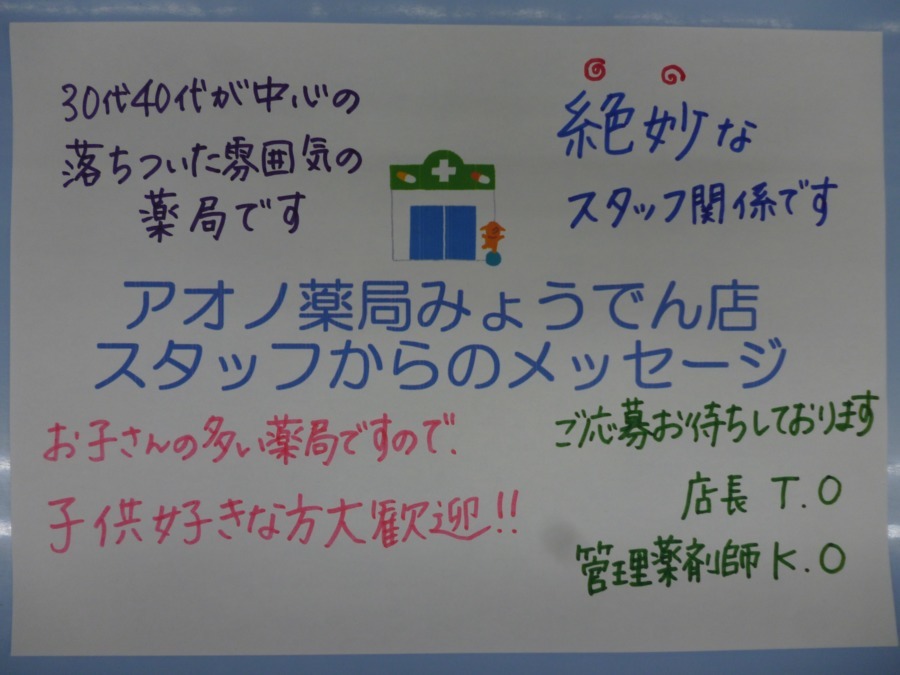 30代40代が中心の
落ちついた雰囲気の
薬局です
絶妙な
スタッフ関係です
アオノ薬局みょうでん店
スタッフからのメッセージ
お子さんの多い薬局ですので、
子供好きな方大歓迎!!
ご応募お待ちしております
店長 T.O
管理薬剤師 K.O